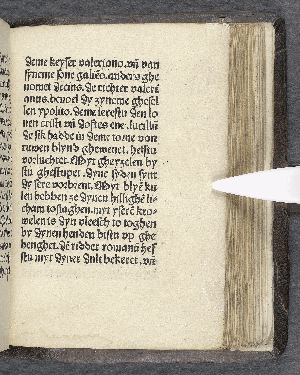 deme keyser valeriano. vn̄ van
syneme sone galieō. anders ghe
nomet decius. de richter valeri
anus. bevoel dy zyneme ghesel
len ypolito. deme ierestu den lo
nen cristi vn̄ doftes ene. lucillū
de sik hadde in deme torne van
ruwen blynd ghewenet. hefstu
vorluchtet. Myt gheyzelen by
stu ghestupet. dyne syden synt
dy sere vorbrent. Myt blyē ku
len hebben ze dynen hillighē li
cham toslaghen. myt yserē kro
welen is dyn vleesch to toghen
by dynen henden bistu vp ghe
henghet. Dē ridder romanū hef
stu myt dyner dult bekeret. vn̄